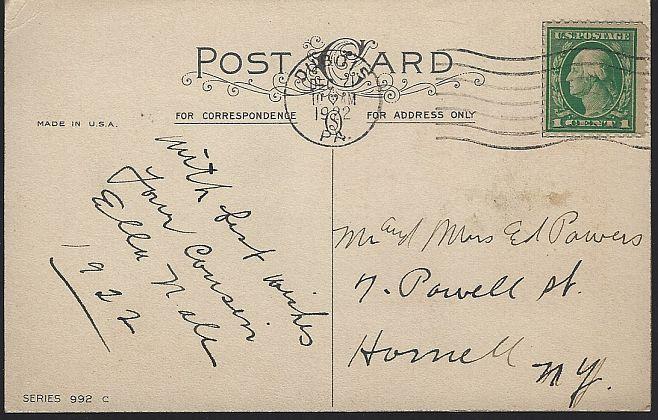 POST CARD
DUBOIS
10 AM
1922
PA.
U.S. POSTAGE
1 CENT 1
MADE IN U.S.A.
FOR CORRESPONDENCE
FOR ADDRESS ONLY
with best wishes
your Cousin
Ella Nale
1922
Mr and Mrs Ed Powers
7. Powell St.
Hornell
N.Y.
SERIES 992 C